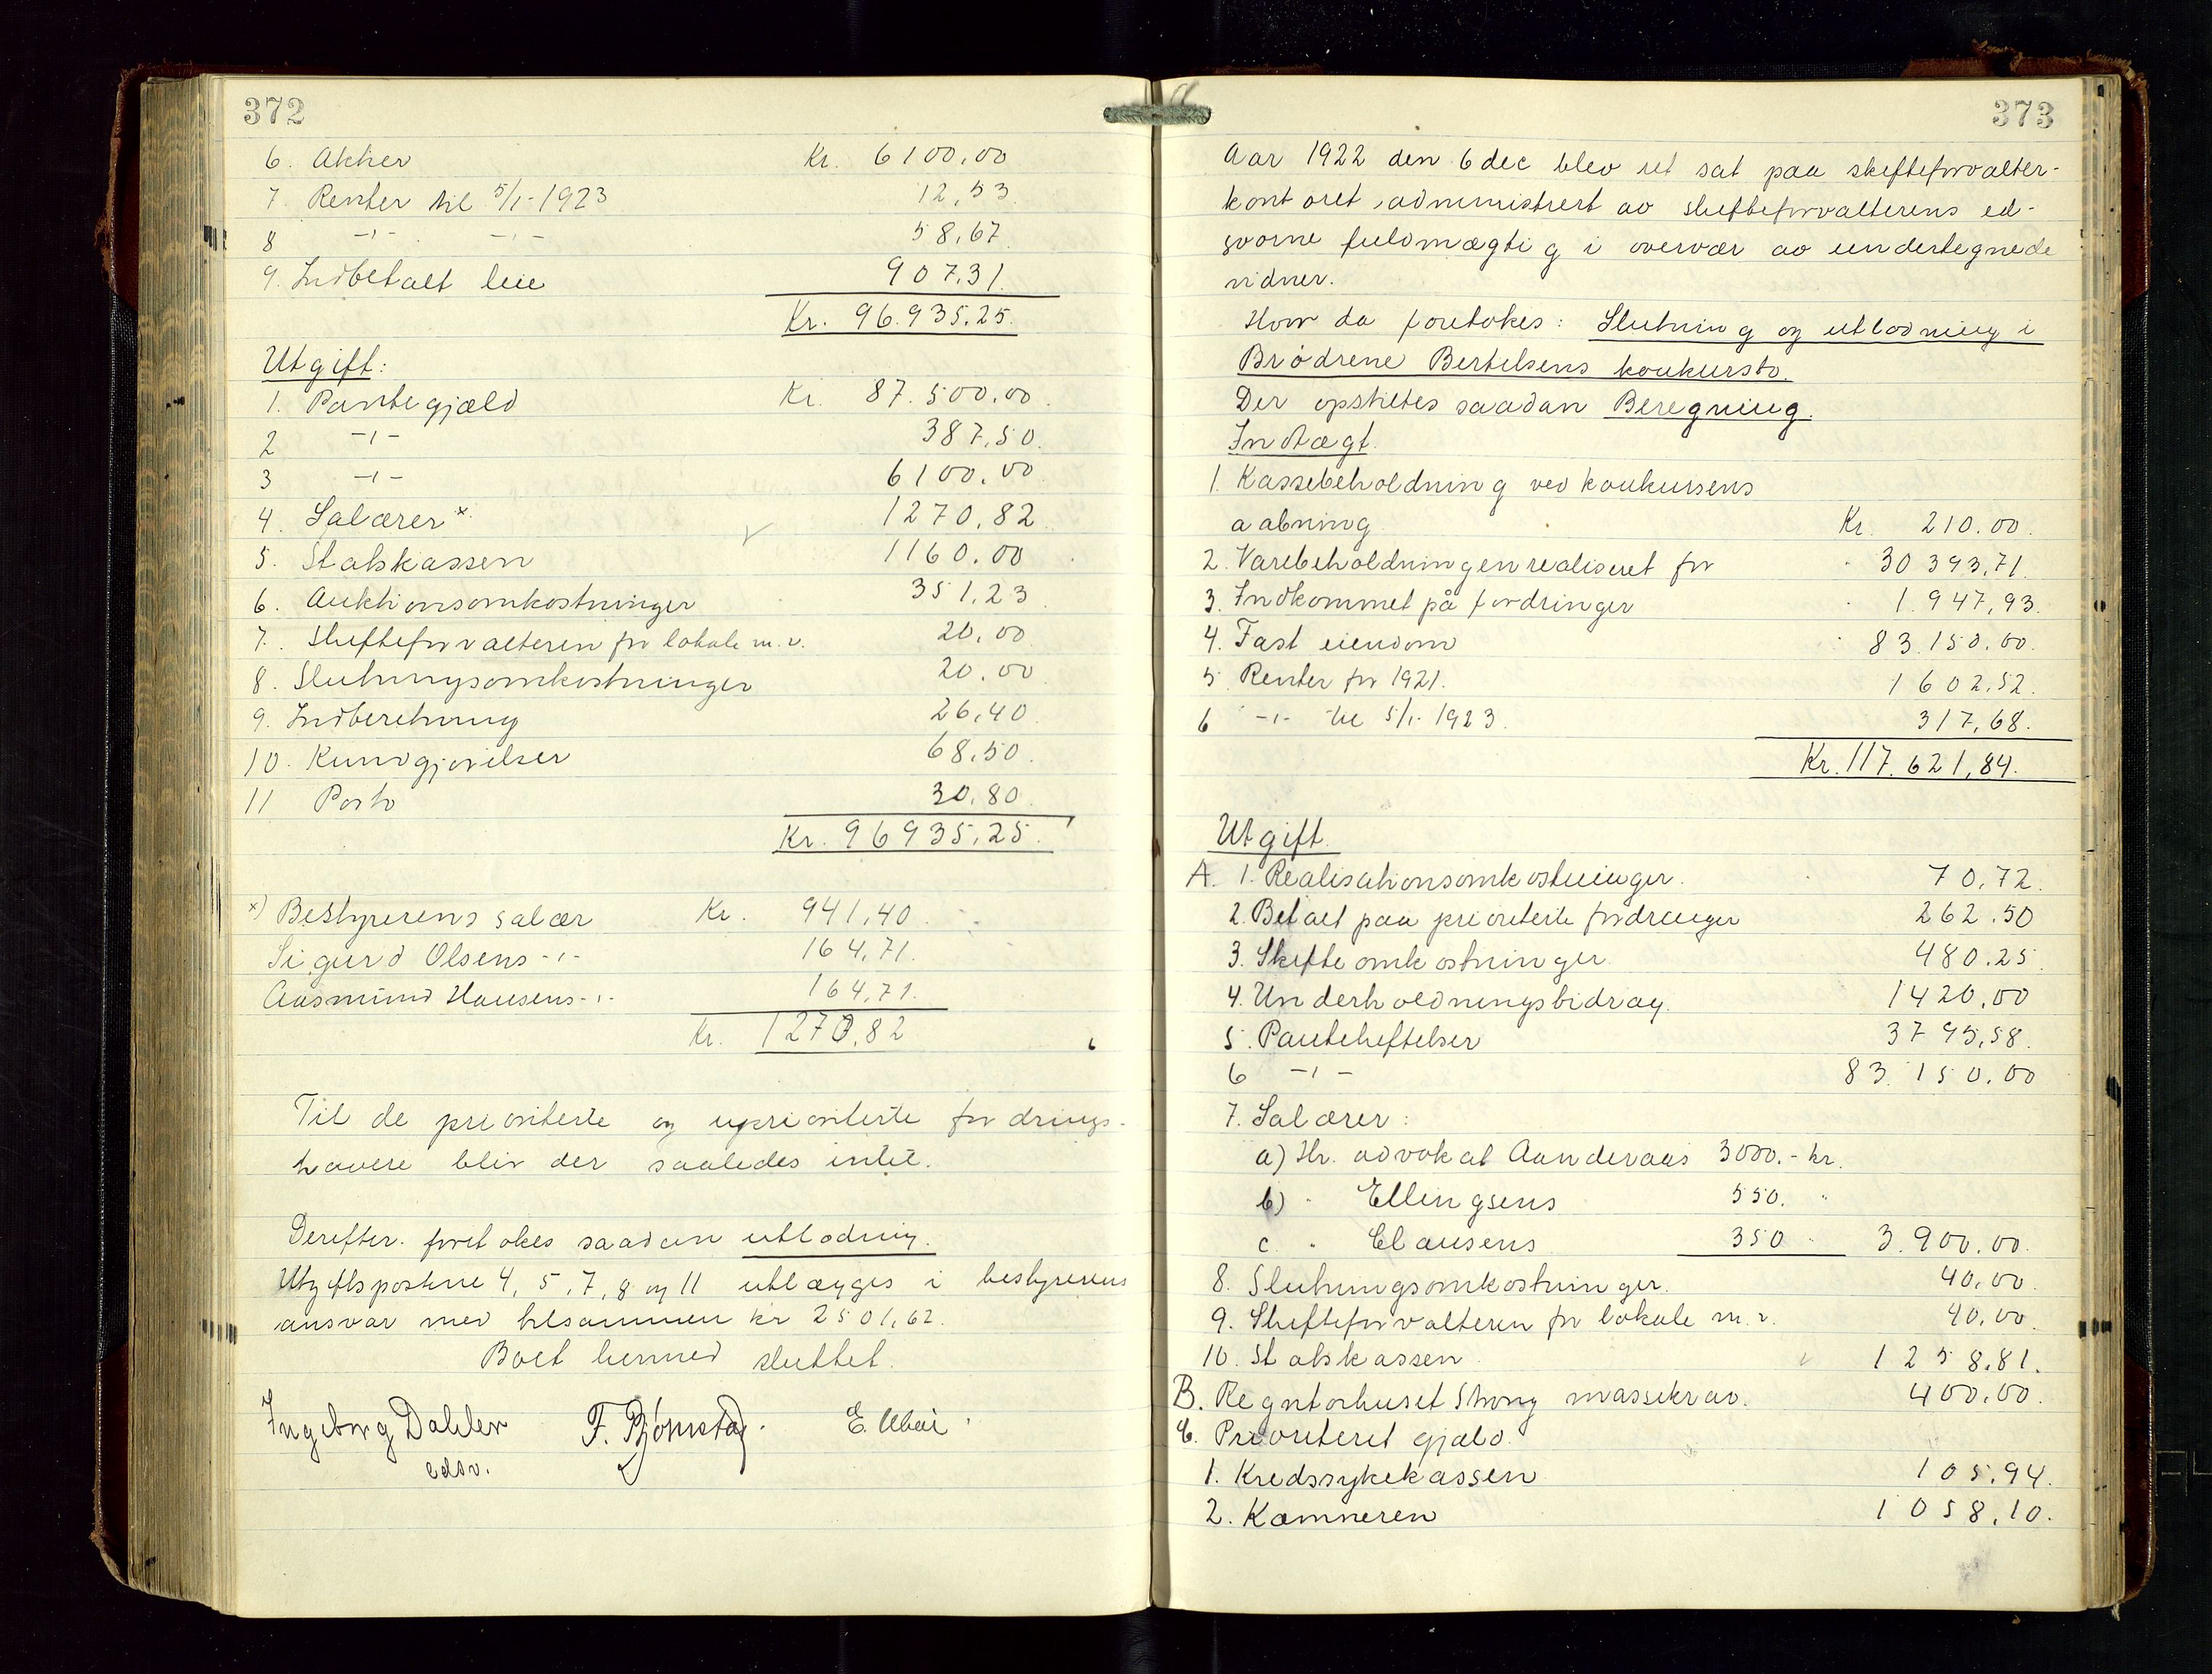 372
6. Aktier Kr. 6100.00
7 Renter til 5/1-1923 12,53
8 -"- -"- 58,67
9. Indbetalt leie 907,31
Kr. 96.935,25.
Utgift:
1. Pantegjæld Kr. 87.500.00
2 -"- 387,50
3 -"- 6100.00
4. Salærer x 1270,82
5. Statskassen 1160.00
6. Auktionsomkostninger 351,23
7. Skifteforvalteren for lokale m.v. 20,00
8. Slutningsomkostninger 20.00
9. Indberetning 26,40
10. Kundgjørelser 68,50
11 Porto 30,80
Kr. 96935,25.
x) Bestyrerens salær Kr. 941,40
Sigurd Olsens -"- 164,71.
Aasmund Hansens -"- 164,71.
Kr. 1270,82
Til de prioriterte og uprioriterte fordrings-
havere blir der saaledes intet.
Derefter foretokes saadan utlodning.
Utgiftspostene 4, 5, 7, 8 og 11 utlægges i bestyrerens
ansvar med tilsammen kr 2501,62.
Boet hermed sluttet.
Ingeborg Dahler F. Bjørnstad. E.
edsv.
373
Aar 1922 den 6 dec blev ret sat paa skifteforvalter-
kontoret, administrert av skifteforvalterens ed-
svorne fuldmægtig i overvær av undertegnede
vidner.
Hvor da foretokes: Slutning og utlodning i
Brødrene Bertelsens konkursbo.
Der opstiltes saadan Beregning.
Indtægt.
1. Kassebeholdning ved konkursens
aabning Kr. 210.00
2. Varebeholdningen realiseret for 30393,71.
3. Indkommet på fordringer 1.947,93.
4. Fast eiendom 83.150.00.
5. Renter for 1921. 1602,52.
6 -"- til 5/1-1923. 317,68.
Kr. 117.621,84.
Utgift.
A. 1. Realisationsomkostninger. 70,72.
2. Betalt paa prioriterte fordringer 262.50
3. Skifteomkostninger 480.25
4. Underholdningsbidrag. 1420,00
5. Panteheftelser 3795,58.
6 -"- 83.150.00
7. Salærer:
a) Hr. advokat Aanderaas 3000.- kr.
b) " Ellingsens 550. "
c. " Clausens 350 " 3.900.00.
8. Slutningsomkostninger. 40,00.
9. Skifteforvalteren for lokale m.v. 40,00.
10. Statskassen 1258,81.
B. Registerhuset Strong massekrav. 400.00.
C. Prioriteret gjæld.
1. Kredssykekassen 105,94.
2. Kæmneren 1058,10.